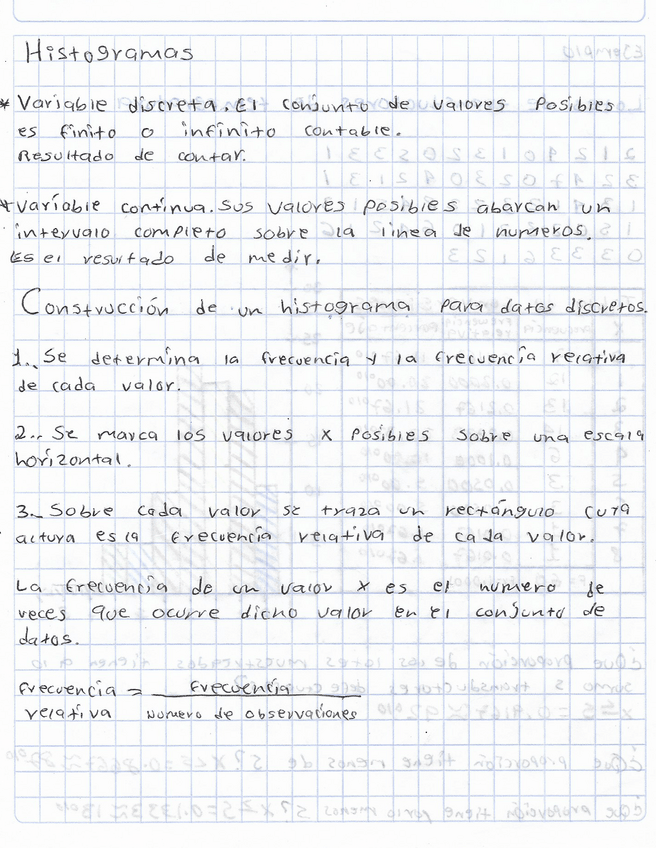 Histogramas
* Variable discreta. El conjunto de valores posibles
es finito o infinito contable.
Resultado de contar.
* Variable continua. Sus valores posibles abarcan un
intervalo completo sobre la linea de numeros.
Es el resultado de medir.
Construcción de un histograma para datos discretos.
1.- Se determina la frecuencia y la frecuencia relativa
de cada valor.
2.- Se marca los valores x posibles sobre una escala
horizontal.
3.- Sobre cada valor se traza un rectángulo cuya
altura es la frecuencia relativa de cada valor.
La frecuencia de un valor x es el numero de
veces que ocurre dicho valor en el conjunto de
datos.
frecuencia = frecuencia
relativa numero de observaciones